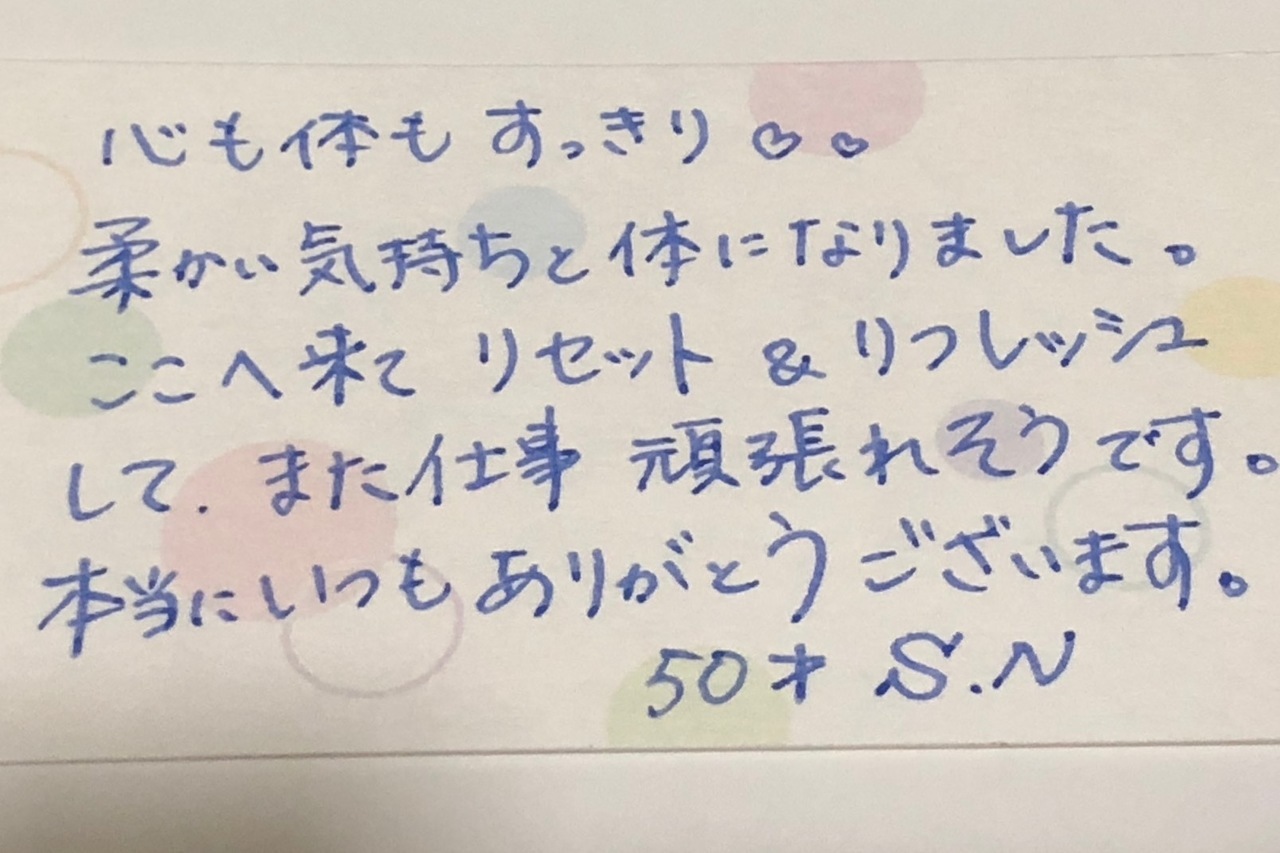 心も体もすっきり♡♡
柔かい気持ちと体になりました。
ここへ来て リセット & リフレッシュ
して. また仕事 頑張れそうです。
本当にいつもありがとうございます。
50才 S.N